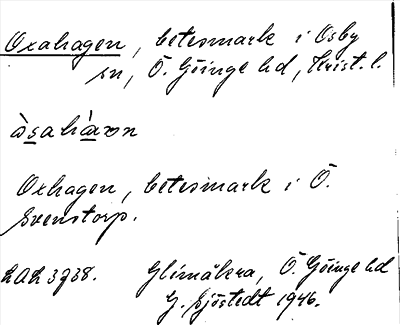 Oxahagen, betesmark i Osby
sn, Ö. Göinge hd, Krist. l.
òsahàɤon
Oxhagen, betesmark i Ö.
Svenstorp.
LAL 3738. Glimåkra, Ö. Göinge hd
G. Sjöstedt 1946.